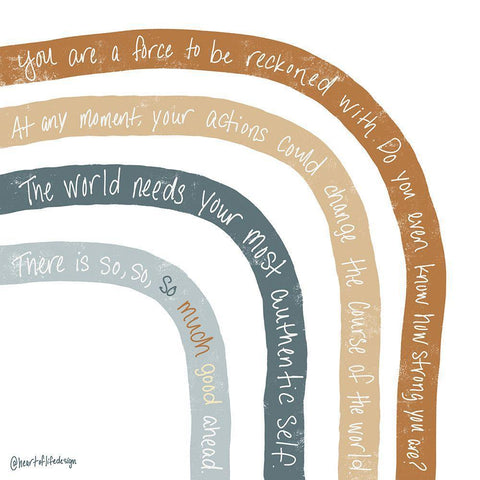 you are a force to be reckoned with. Do you even know how strong you are?
At any moment, your actions could change the course of the world
The world needs your most authentic self.
There is so, so, so much good ahead.
@heartoflifedesign